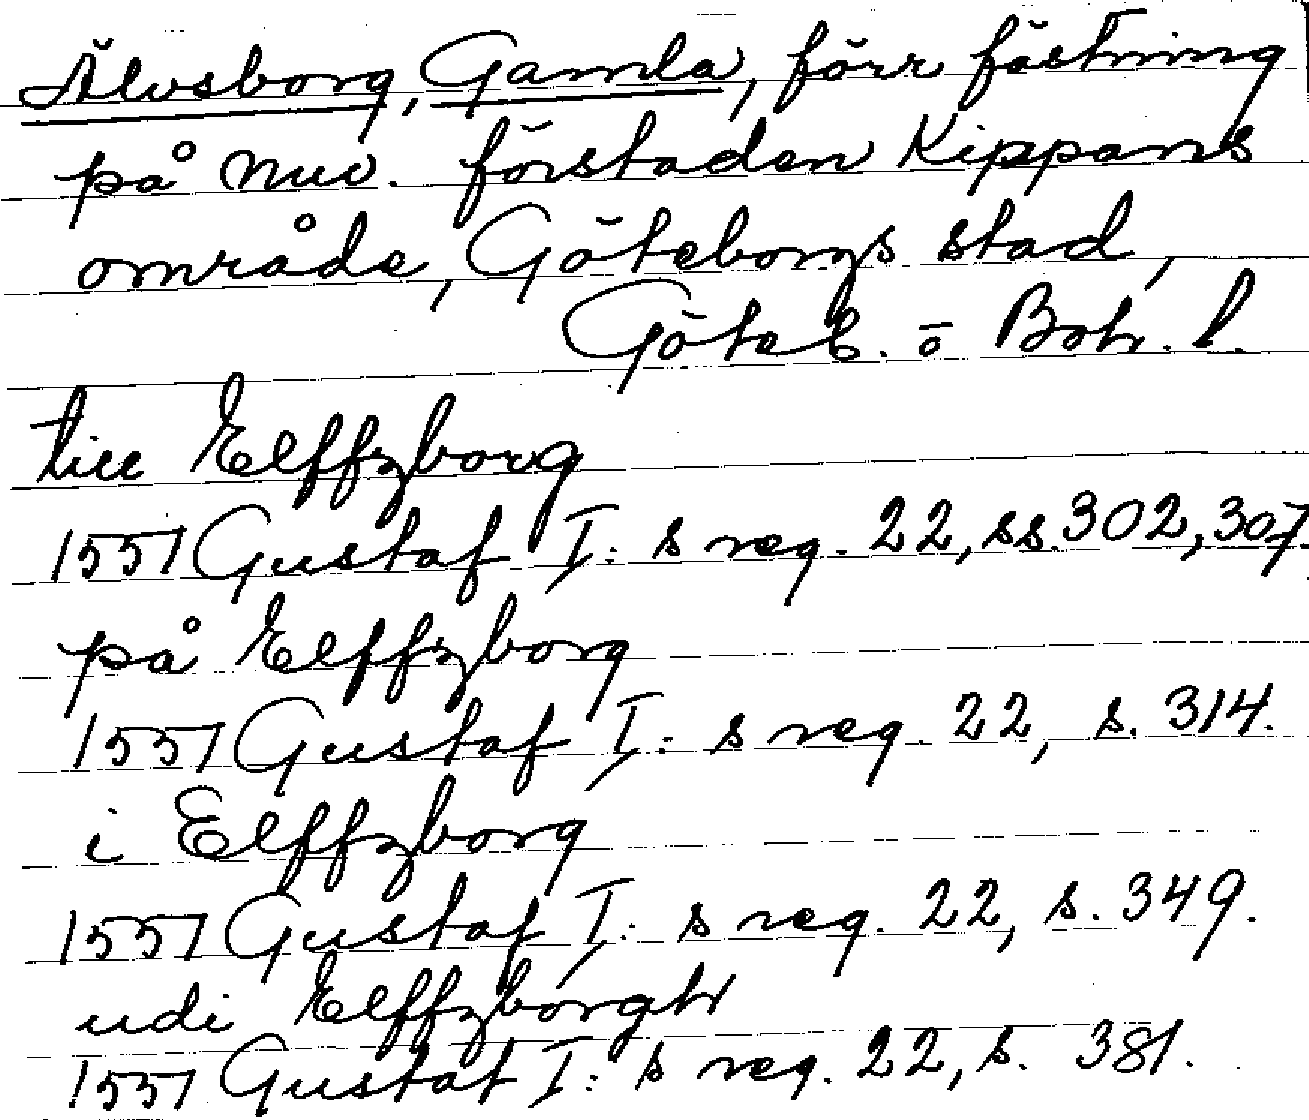 Älvsborg, Gamla, förr fästning
på nuv. förstaden Klippans
område, Göteborgs stad,
Göteb. o Boh. l.
till Elffzborg
1551 Gustaf I: s reg. 22, ss. 302, 307.
på Elffzborg
1551 Gustaf I: s reg. 22, s. 314.
i Elffzborg
1551 Gustaf I: s reg. 22, s. 349.
udi Elffzborgh
1551 Gustaf I: s reg. 22, s. 381.